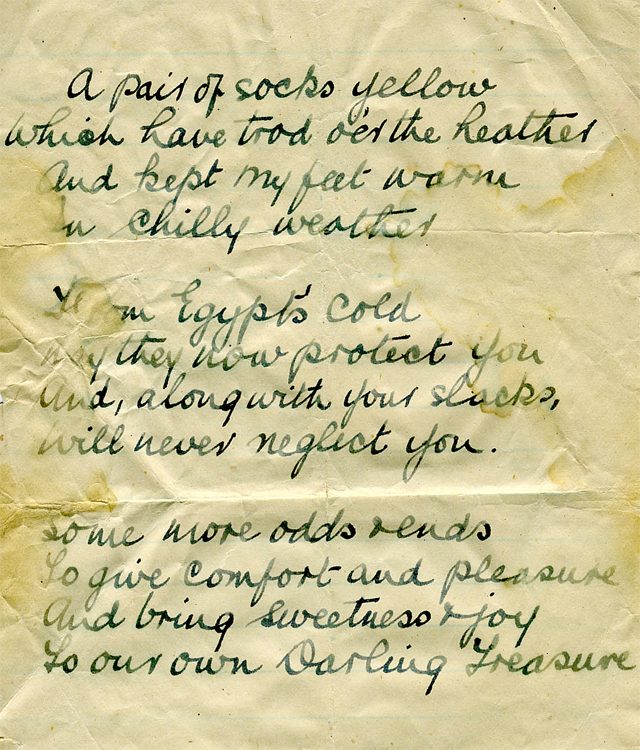 A pair of socks yellow
which have trod o'er the heather
And kept my feet warm
In chilly weather
From Egypt's cold
May they now protect you
And, along with your slacks,
Will never neglect you.
Some more odds & ends
To give comfort and pleasure
And bring sweetness & joy
To our own Darling Treasure